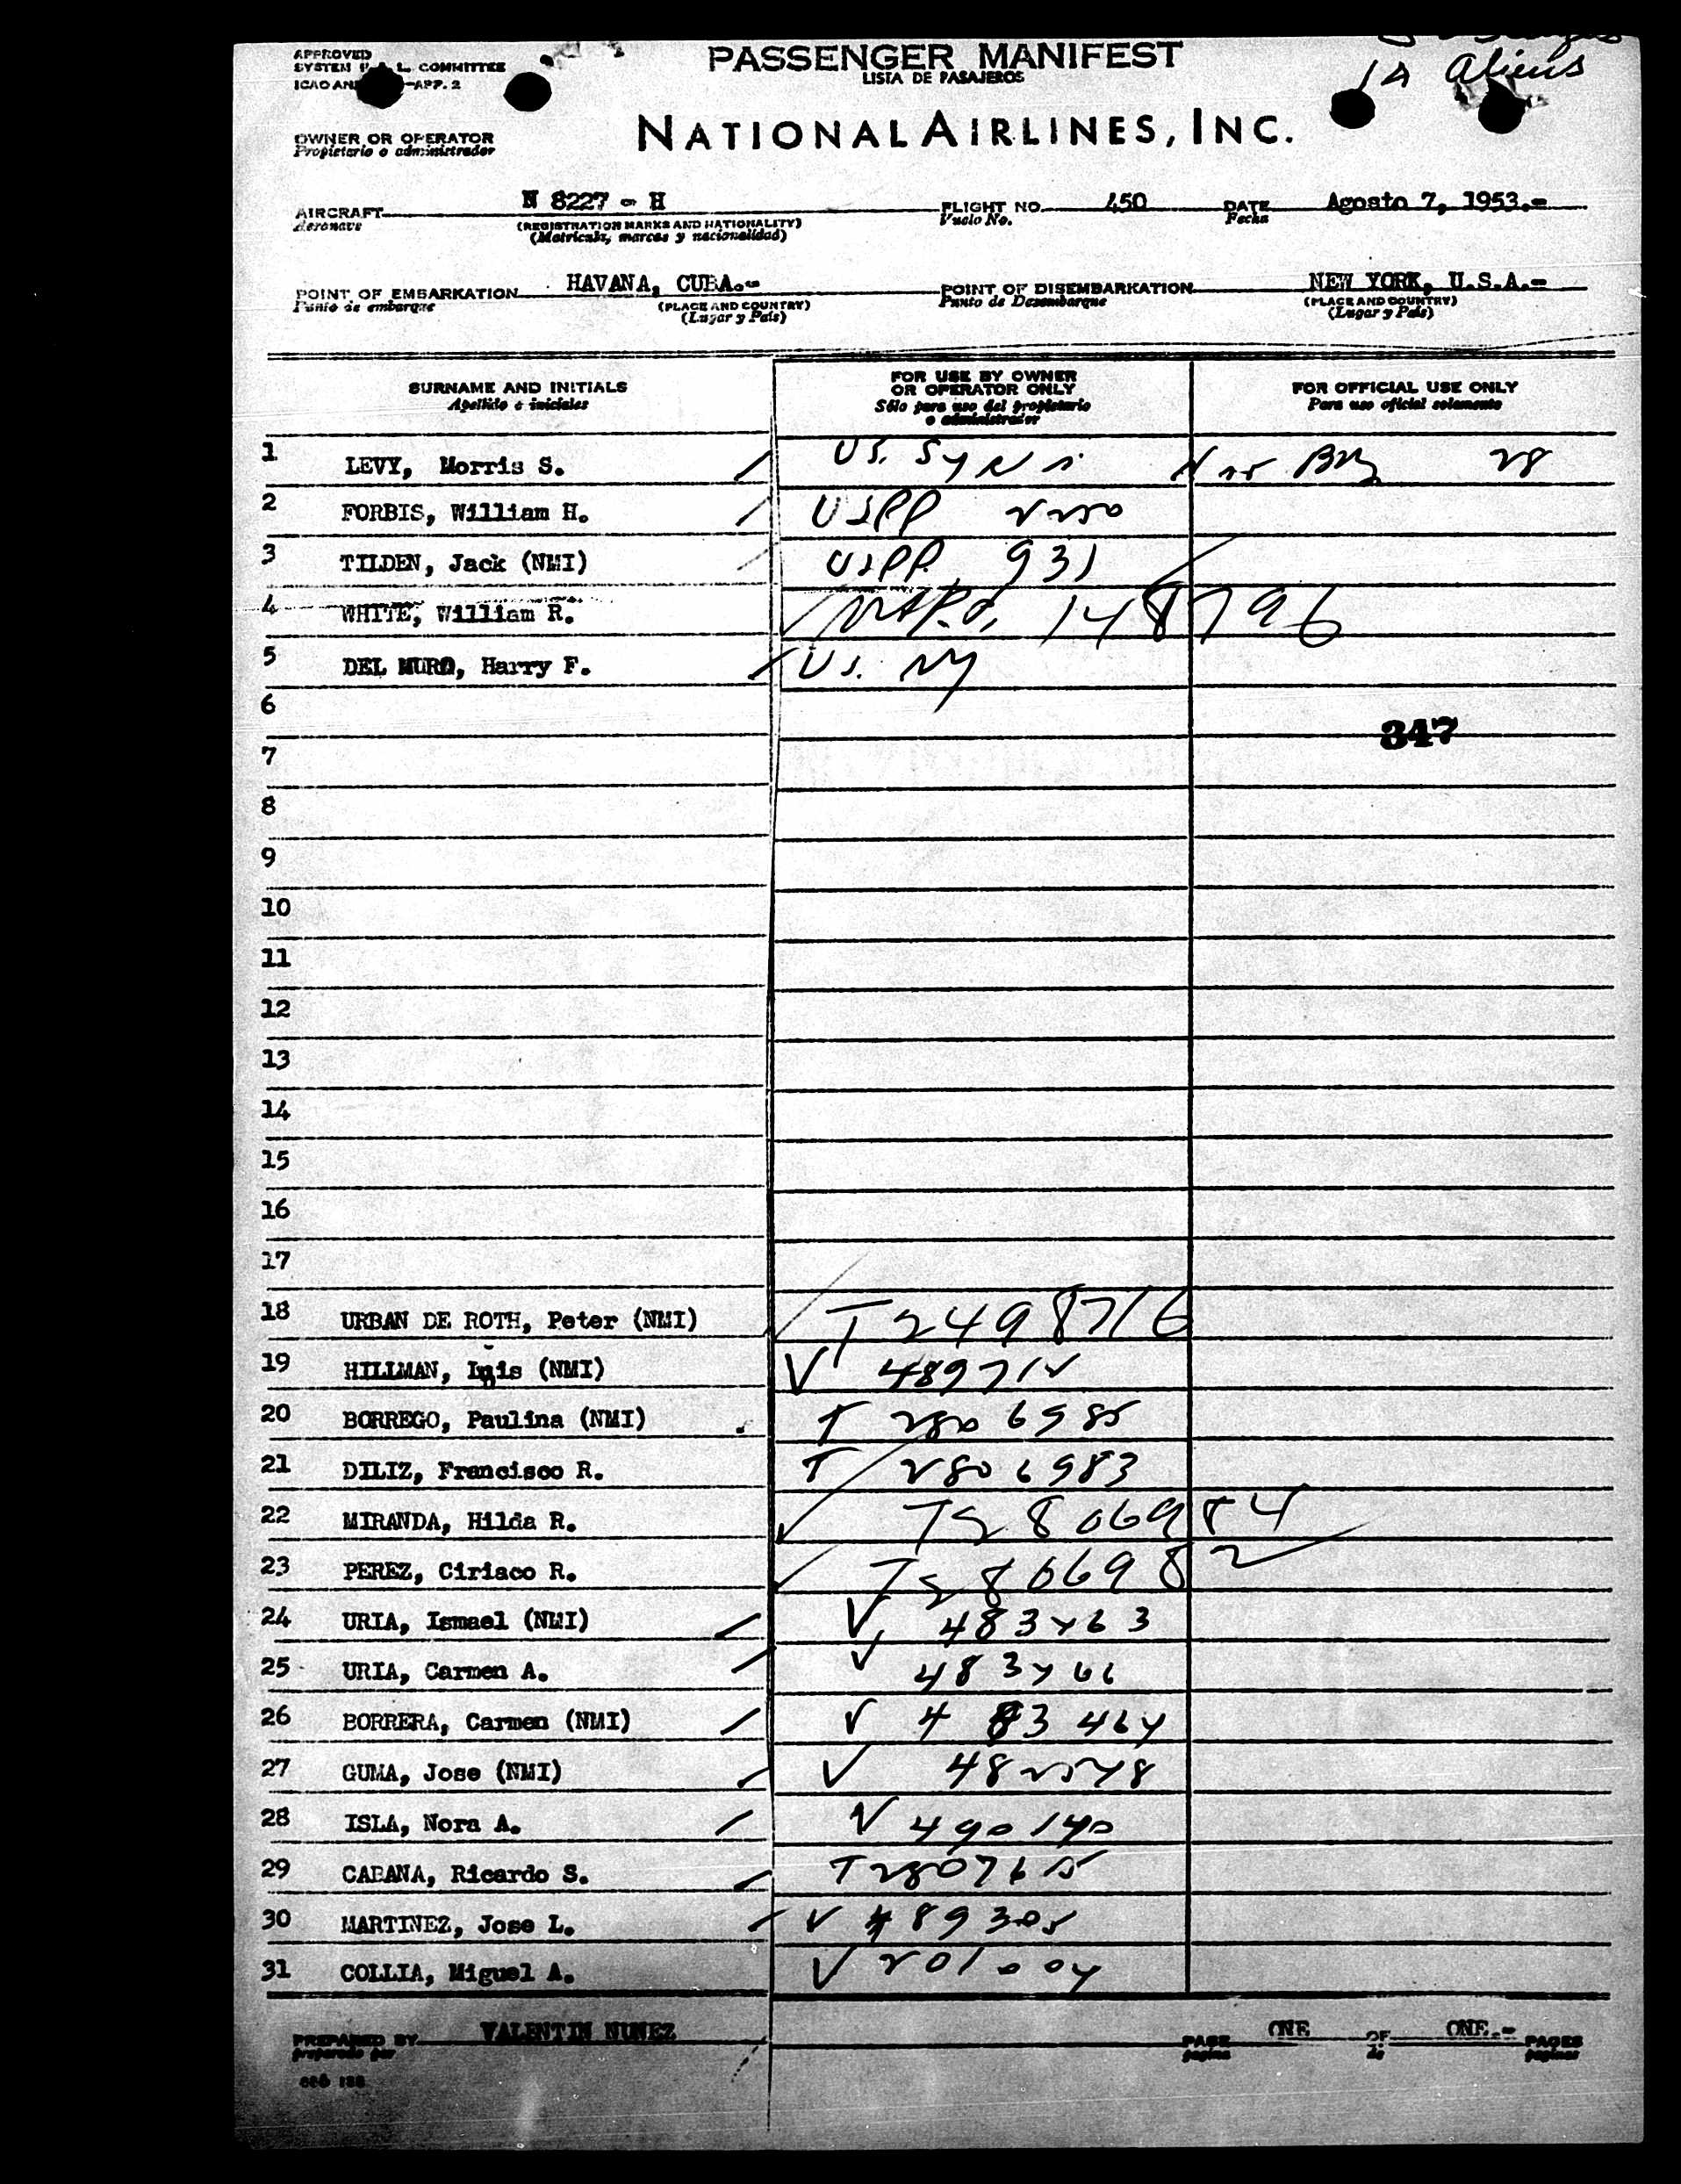 APPROVED
SYSTEM L. COMMITTEE
ICAO AN -APP. 2
PASSENGER MANIFEST
LISTA DE PASAJEROS
14 Aliens
OWNER OR OPERATOR
Propietario o administrador
NATIONAL AIRLINES, INC.
AIRCRAFT N 8227 - H
Aeronave
(REGISTRATION MARKS AND NATIONALITY)
(Matricula, marcas y nacionalidad)
FLIGHT NO. 450
Vuelo No.
DATE Agosto 7, 1953.-
Fecha
POINT OF EMBARKATION HAVANA, CUBA.-
Punto de embarque
(PLACE AND COUNTRY)
(Lugar y País)
POINT OF DISEMBARKATION NEW YORK, U.S.A.-
Punto de Desembarque
(PLACE AND COUNTRY)
(Lugar y País)
SURNAME AND INITIALS
Apellido e iniciales
FOR USE BY OWNER
OR OPERATOR ONLY
Sólo para uso del propietario
o administrador
FOR OFFICIAL USE ONLY
Para uso oficial solamente
1 LEVY, Morris S. US. 28
2 FORBIS, William H. USPP
3 TILDEN, Jack (NMI) USPP. 931
4 WHITE, William R. 148796
5 DEL MURO, Harry F. US. NY
6
347
7
8
9
10
11
12
13
14
15
16
17
18 URBAN DE ROTH, Peter (NMI) T 2498716
19 HILLMAN, (NMI) V 489712
20 BORREGO, Paulina (NMI) T 2806985
21 DILIZ, Francisco R. T 2806983
22 MIRANDA, Hilda R. T2806984
23 PEREZ, Ciriaco R. T2806982
24 URIA, Ismael (NMI) V 483463
25 URIA, Carmen A. V 483466
26 BORRERA, Carmen (NMI) V 483464
27 GUMA, Jose (NMI) V 482548
28 ISLA, Nora A. V 490140
29 CABANA, Ricardo S. T 2807615
30 MARTINEZ, Jose L. V 489305
31 COLLIA, Miguel A. V 201004
PREPARED BY VALENTIN NUNEZ
preparado por
PAGE ONE OF ONE.- PAGES
página de páginas